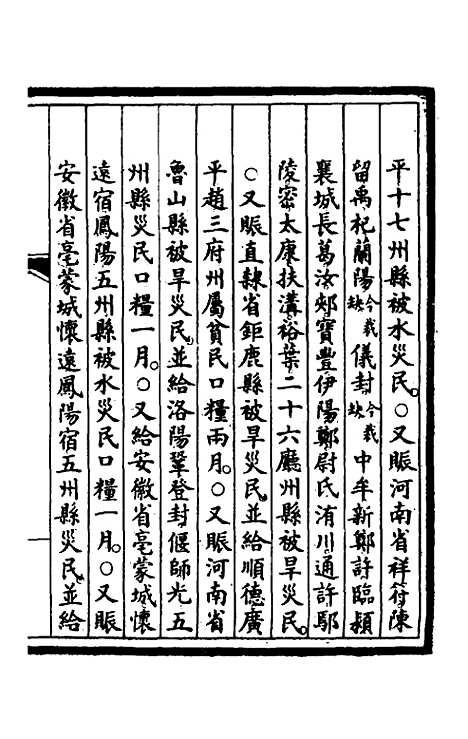 平十七州縣被水災民。○又賑河南省祥符陳
留禹杞蘭陽今裁缺儀封今裁缺中牟新鄭許臨潁
襄城長葛汝郟寶豐伊陽鄭尉氏洧川通許鄢
陵密太康扶溝裕葉二十六廳州縣被旱災民。
○又賑直隸省鉅鹿縣被旱災民並給順德廣
平趙三府州屬貧民口糧兩月。○又賑河南省
魯山縣被旱災民並給洛陽鞏登封偃師光五
州縣災民口糧一月。○又給安徽省亳蒙城懷
遠宿鳳陽五州縣被水災民口糧一月。○又賑
安徽省亳蒙城懷遠鳳陽宿五州縣災民並給